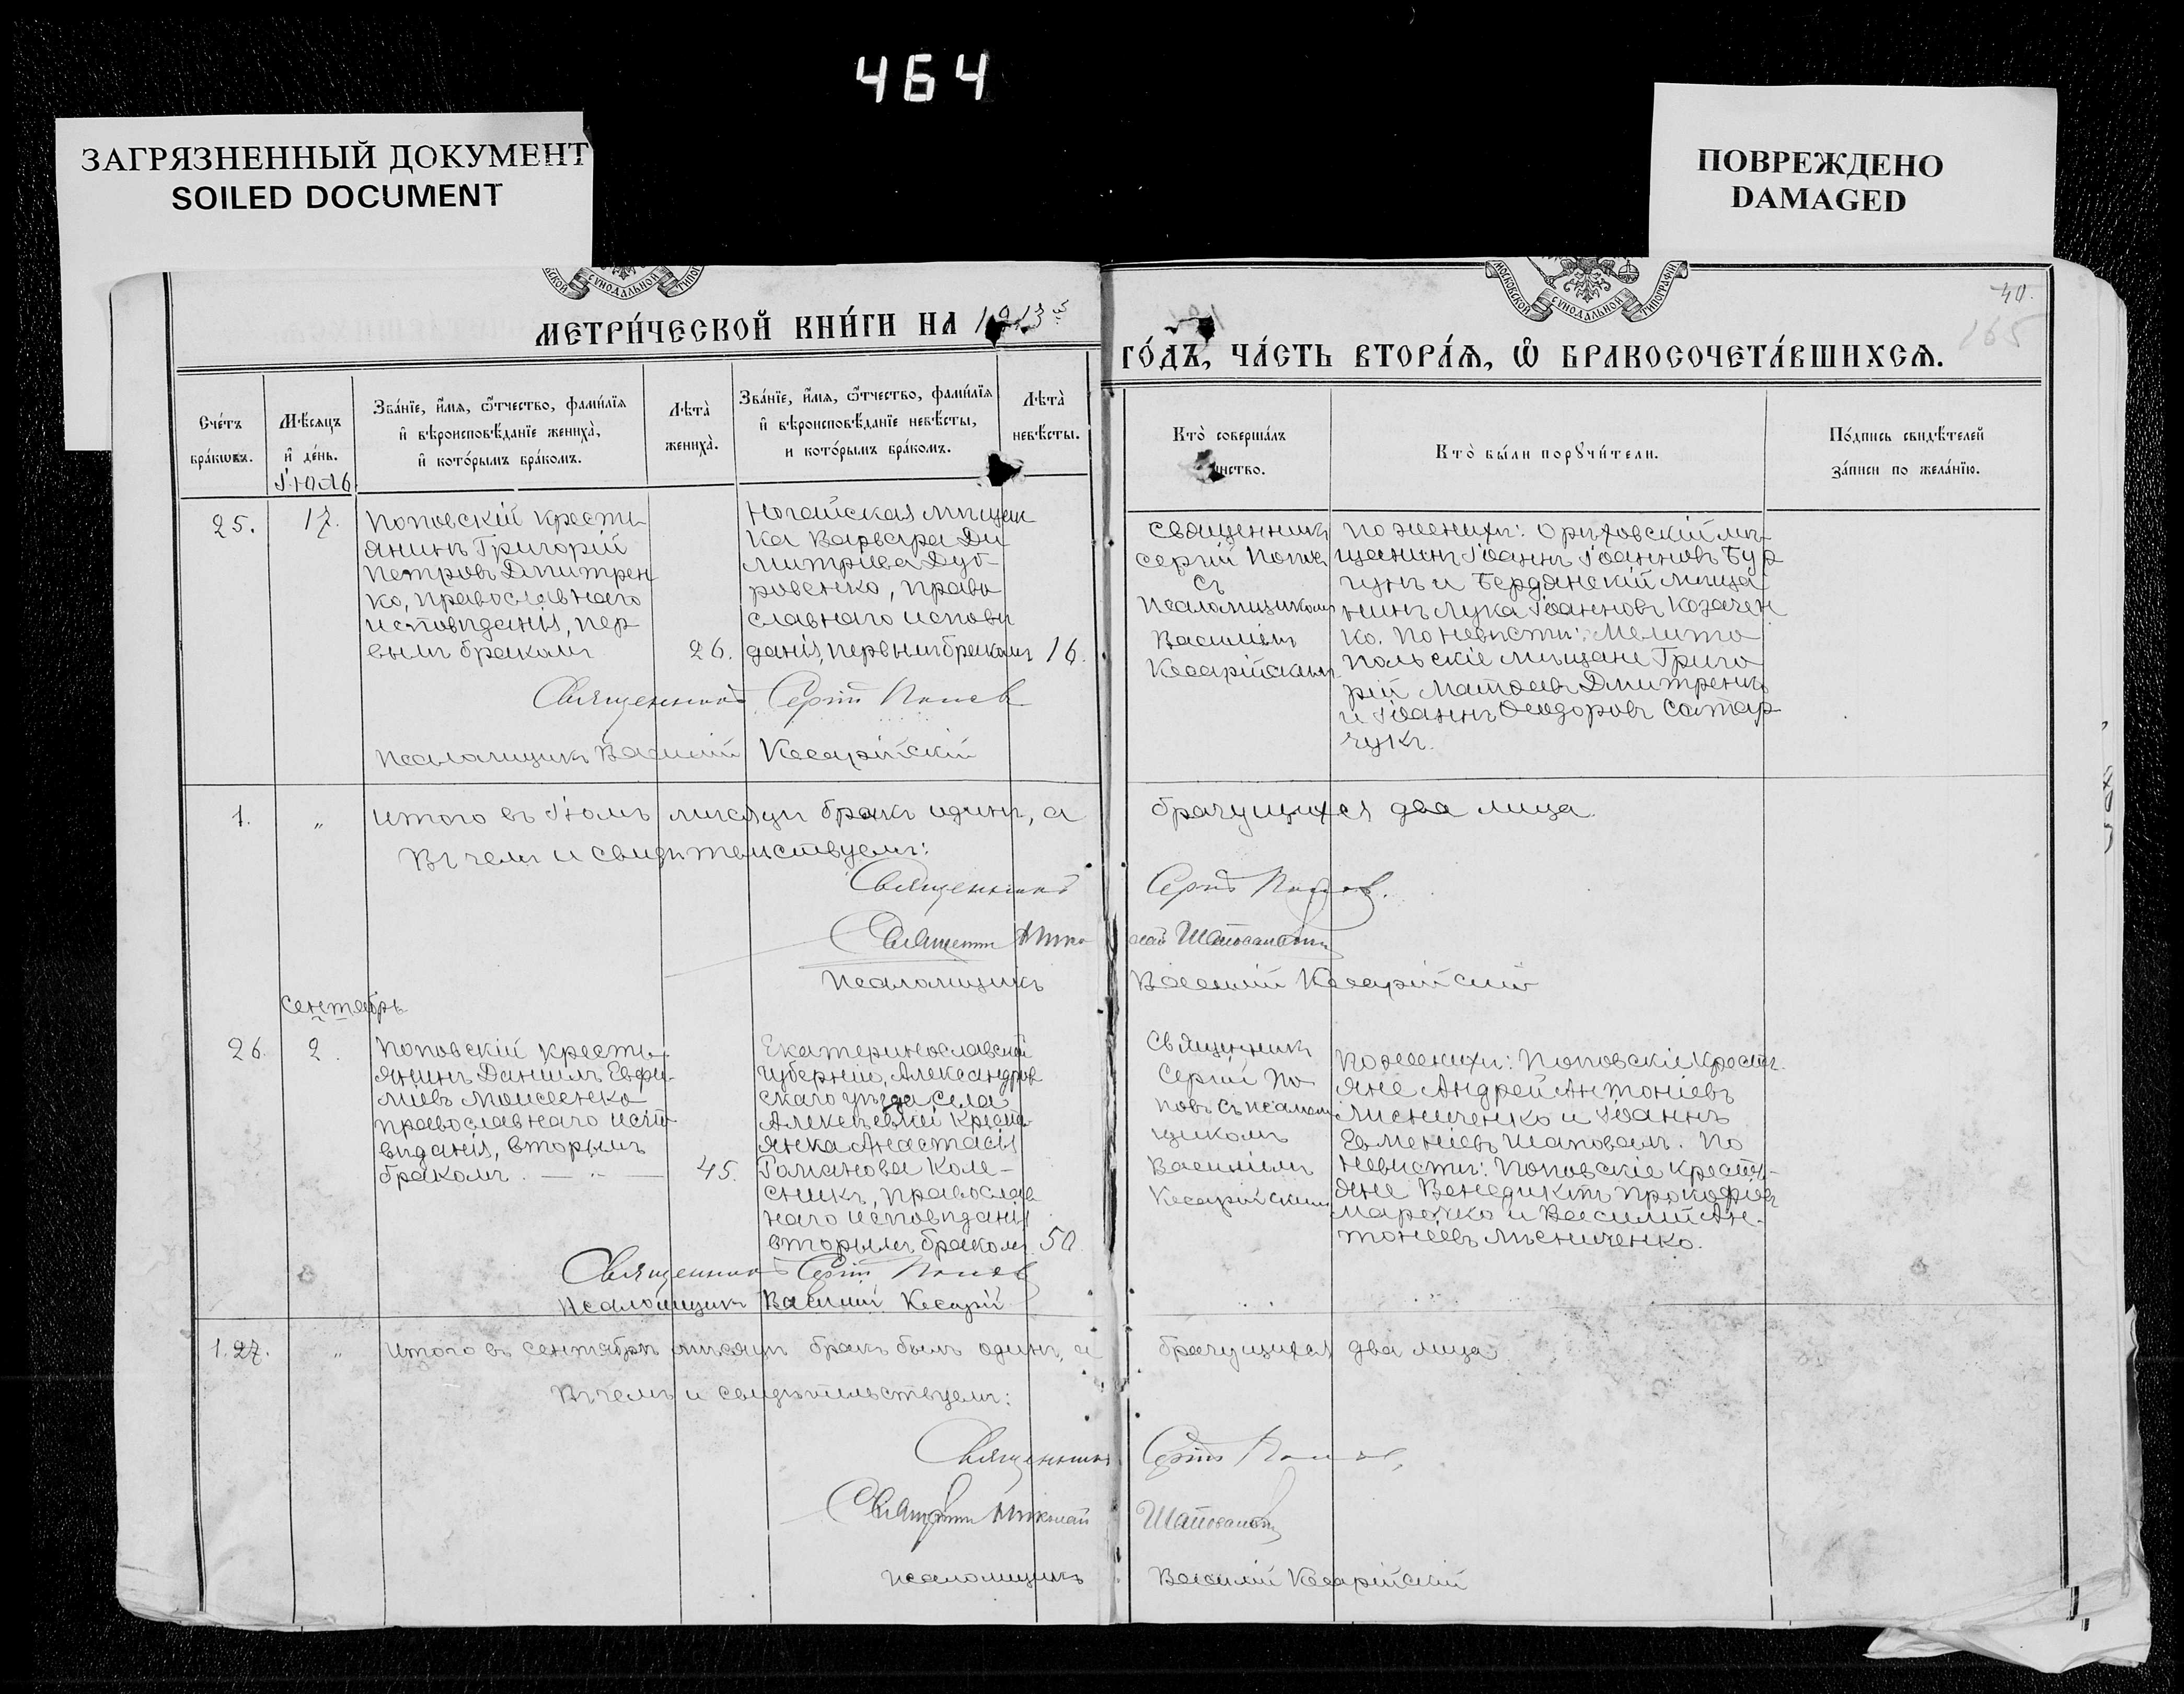 464
ЗАГРЯЗНЕННЫЙ ДОКУМЕНТ
SOILED DOCUMENT
ПОВРЕЖДЕНО
DAMAGED
МОСКОВСКОЙ СУНОДАЛЬНОЙ ТИПОГРАФІИ
40.
165
МЕТРИ́ЧЕСКОЙ КНИ́ГИ НА 1913й
ГО́ДЪ, ЧА́СТЬ ВТОРА́Ѧ, Ѡ БРАКОСОЧЕТА́ВШИХСѦ.
Сче́тъ
бра́кѡвъ.
Мѣ́сяцъ
и҆ де́нь.
Іюль
Зва́нїе, и҆́мѧ, ѻ҆́тчество, фами́лїѧ
и҆ вѣроисповѣ́данїе жениха̀,
и҆ кото́рымъ бра́комъ.
Лѣта̀
жениха̀.
Зва́нїе, и҆́мѧ, ѻ҆́тчество, фами́лїѧ
и҆ вѣроисповѣ́данїе невѣ́сты,
и кото́рымъ бра́комъ.
Лѣта̀
невѣ́сты.
Кто̀ соверша́лъ
инство.
Кто̀ бы́ли порꙋчи́тели.
По́дпись свидѣ́телей
за́писи по жела́нїю.
25.
17.
Поповскій кресть
янинъ Григорій
Петровъ Дмитрен
ко, православнаго
исповѣданія, пер
вымъ бракомъ
26.
Ногайская мѣщан
ка Варвара Ди
митріева Дуб-
ровенко, право
славнаго исповѣ
данія, первымъ бракомъ
16.
Священникъ
Сергій Попов
съ
Псаломщикомъ
Василіемъ
Кесарійскимъ
По женихѣ: Орѣховскій мѣ-
щанинъ Іоаннъ Іоанновъ Бур
гунъ и Бердянскій мѣща-
нинъ Лука Іоанновъ Козачен
ко. По невѣстѣ: Мелито
польскіе мѣщане Григо
рій Матѳеевъ Дмитренко
и Іоаннъ Ѳеодоровъ Сатар
чукъ.
Священникъ Сергій Попов
Псаломщикъ Василій Кесарійскій
1. „ Итого въ Іюлѣ мѣсяцѣ бракъ одинъ, а брачущихся два лица.
Въ чемъ и свидѣтельствуемъ:
Священникъ Сергій Попов.
Священникъ Николай Шаповаловъ
Псаломщикъ Василій Кесарійскій
Сентябрь
26.
2.
Поповскій кресть-
янинъ Даніилъ Евфи-
міевъ Моисеенко
православнаго испо-
вѣданія, вторымъ
бракомъ. — „ —
45.
Екатеринославской
губерніи, Александров
скаго уѣзда села
Алексѣевки кресть
янка Анастасія
Романова Коле-
сникъ, православ
наго исповѣданія
вторымъ бракомъ
50
Священникъ
Сергій По
повъ съ псалом
щикомъ
Василіемъ
Кесарійскимъ
По женихѣ: Поповскіе кресть-
яне Андрей Антоніевъ
Лисниченко и Іоаннъ
Евменіевъ Шаповалъ. По
невѣстѣ: Поповскіе кресть-
яне Венедиктъ Прокофіевъ
Марочко и Василій Ан-
тоніевъ Лисниченко.
Священникъ Сергій Попов
Псаломщикъ Василій Кесарій
1. 27. „ Итого въ сентябрѣ мѣсяцѣ бракъ былъ одинъ, а брачущихся два лица
Въ чемъ и свидѣтельствуемъ:
Священникъ Сергій Попов.
Священникъ Николай Шаповаловъ
Псаломщикъ Василій Кесарійскій